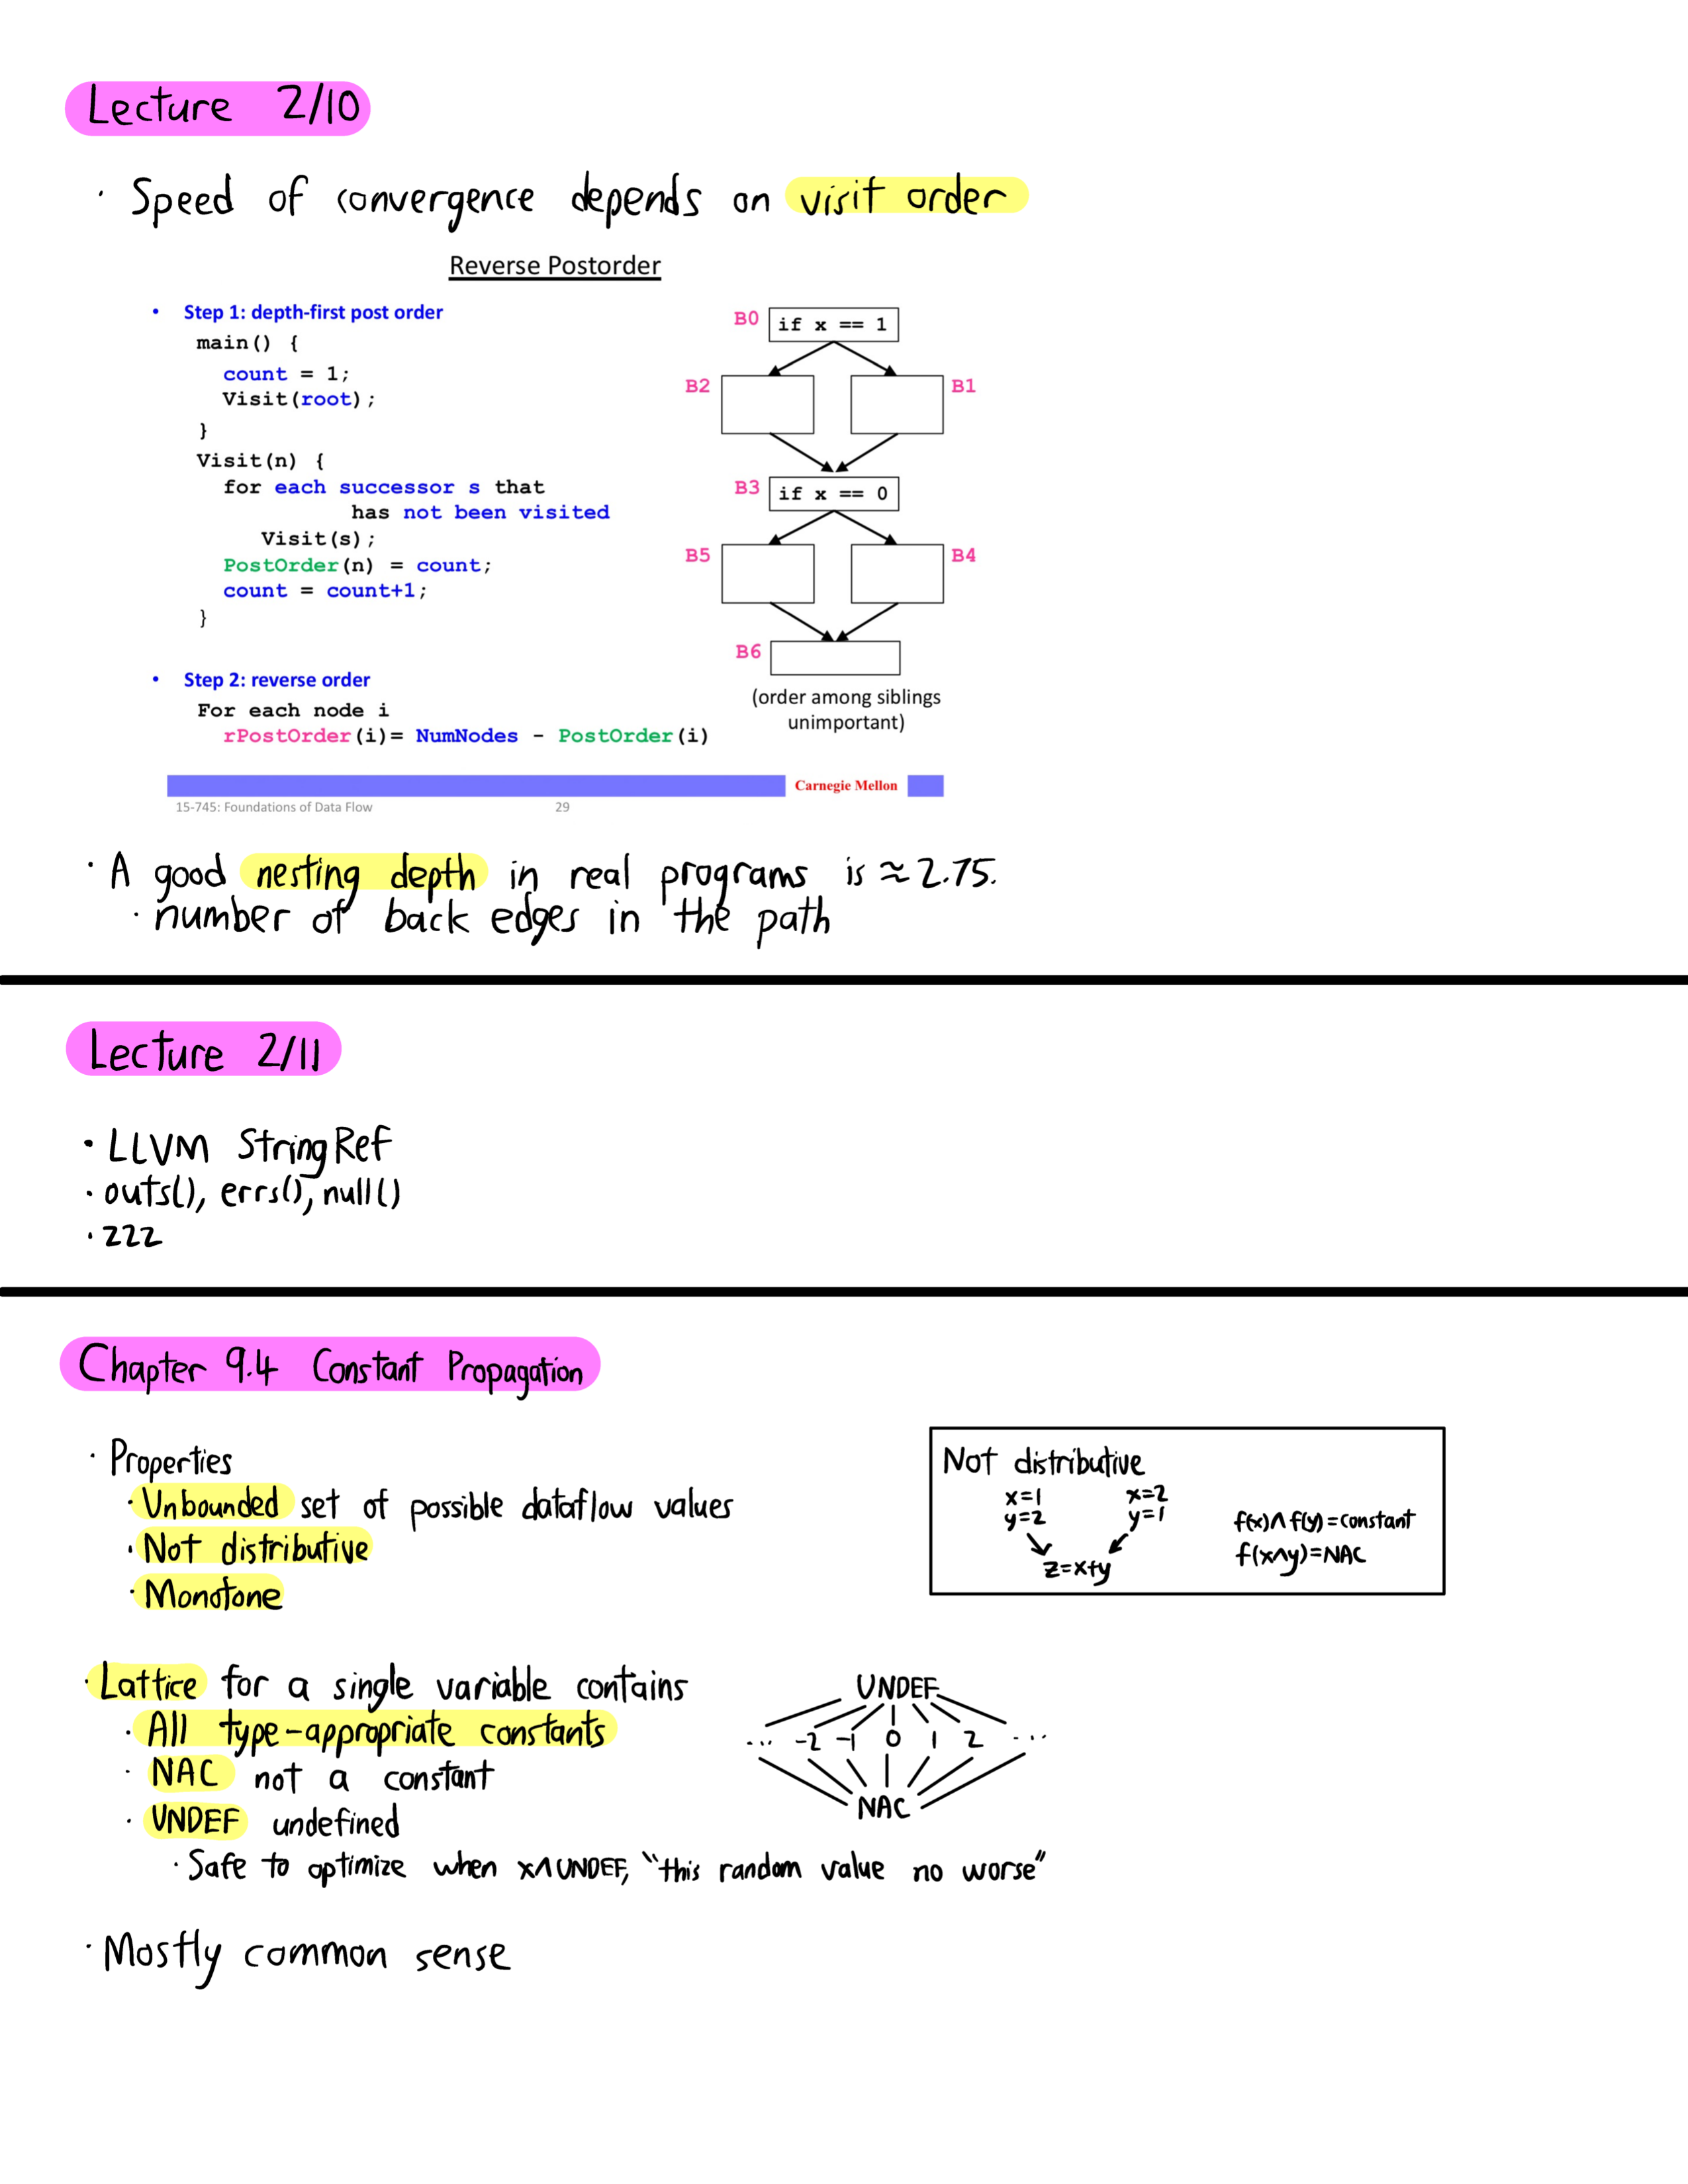 Lecture 2/10
· Speed of convergence depends on visit order
Reverse Postorder
• Step 1: depth-first post order
main() {
count = 1;
Visit(root);
}
Visit(n) {
for each successor s that
has not been visited
Visit(s);
PostOrder(n) = count;
count = count+1;
}
• Step 2: reverse order
For each node i
rPostOrder(i)= NumNodes - PostOrder(i)
B0 if x == 1
B2 B1
B3 if x == 0
B5 B4
B6
(order among siblings
unimportant)
Carnegie Mellon
15-745: Foundations of Data Flow 29
· A good nesting depth in real programs is ≈ 2.75.
· number of back edges in the path
Lecture 2/11
· LLVM StringRef
· outs(), errs(), null()
· zzz
Chapter 9.4 Constant Propagation
· Properties
· Unbounded set of possible dataflow values
· Not distributive
· Monotone
Not distributive
x=1 x=2
y=2 y=1
z=x+y
f(x)∧f(y)=constant
f(x∧y)=NAC
· Lattice for a single variable contains
· All type-appropriate constants
· NAC not a constant
· UNDEF undefined
· Safe to optimize when x∧UNDEF, "this random value no worse"
UNDEF
... -2 -1 0 1 2 ...
NAC
· Mostly common sense